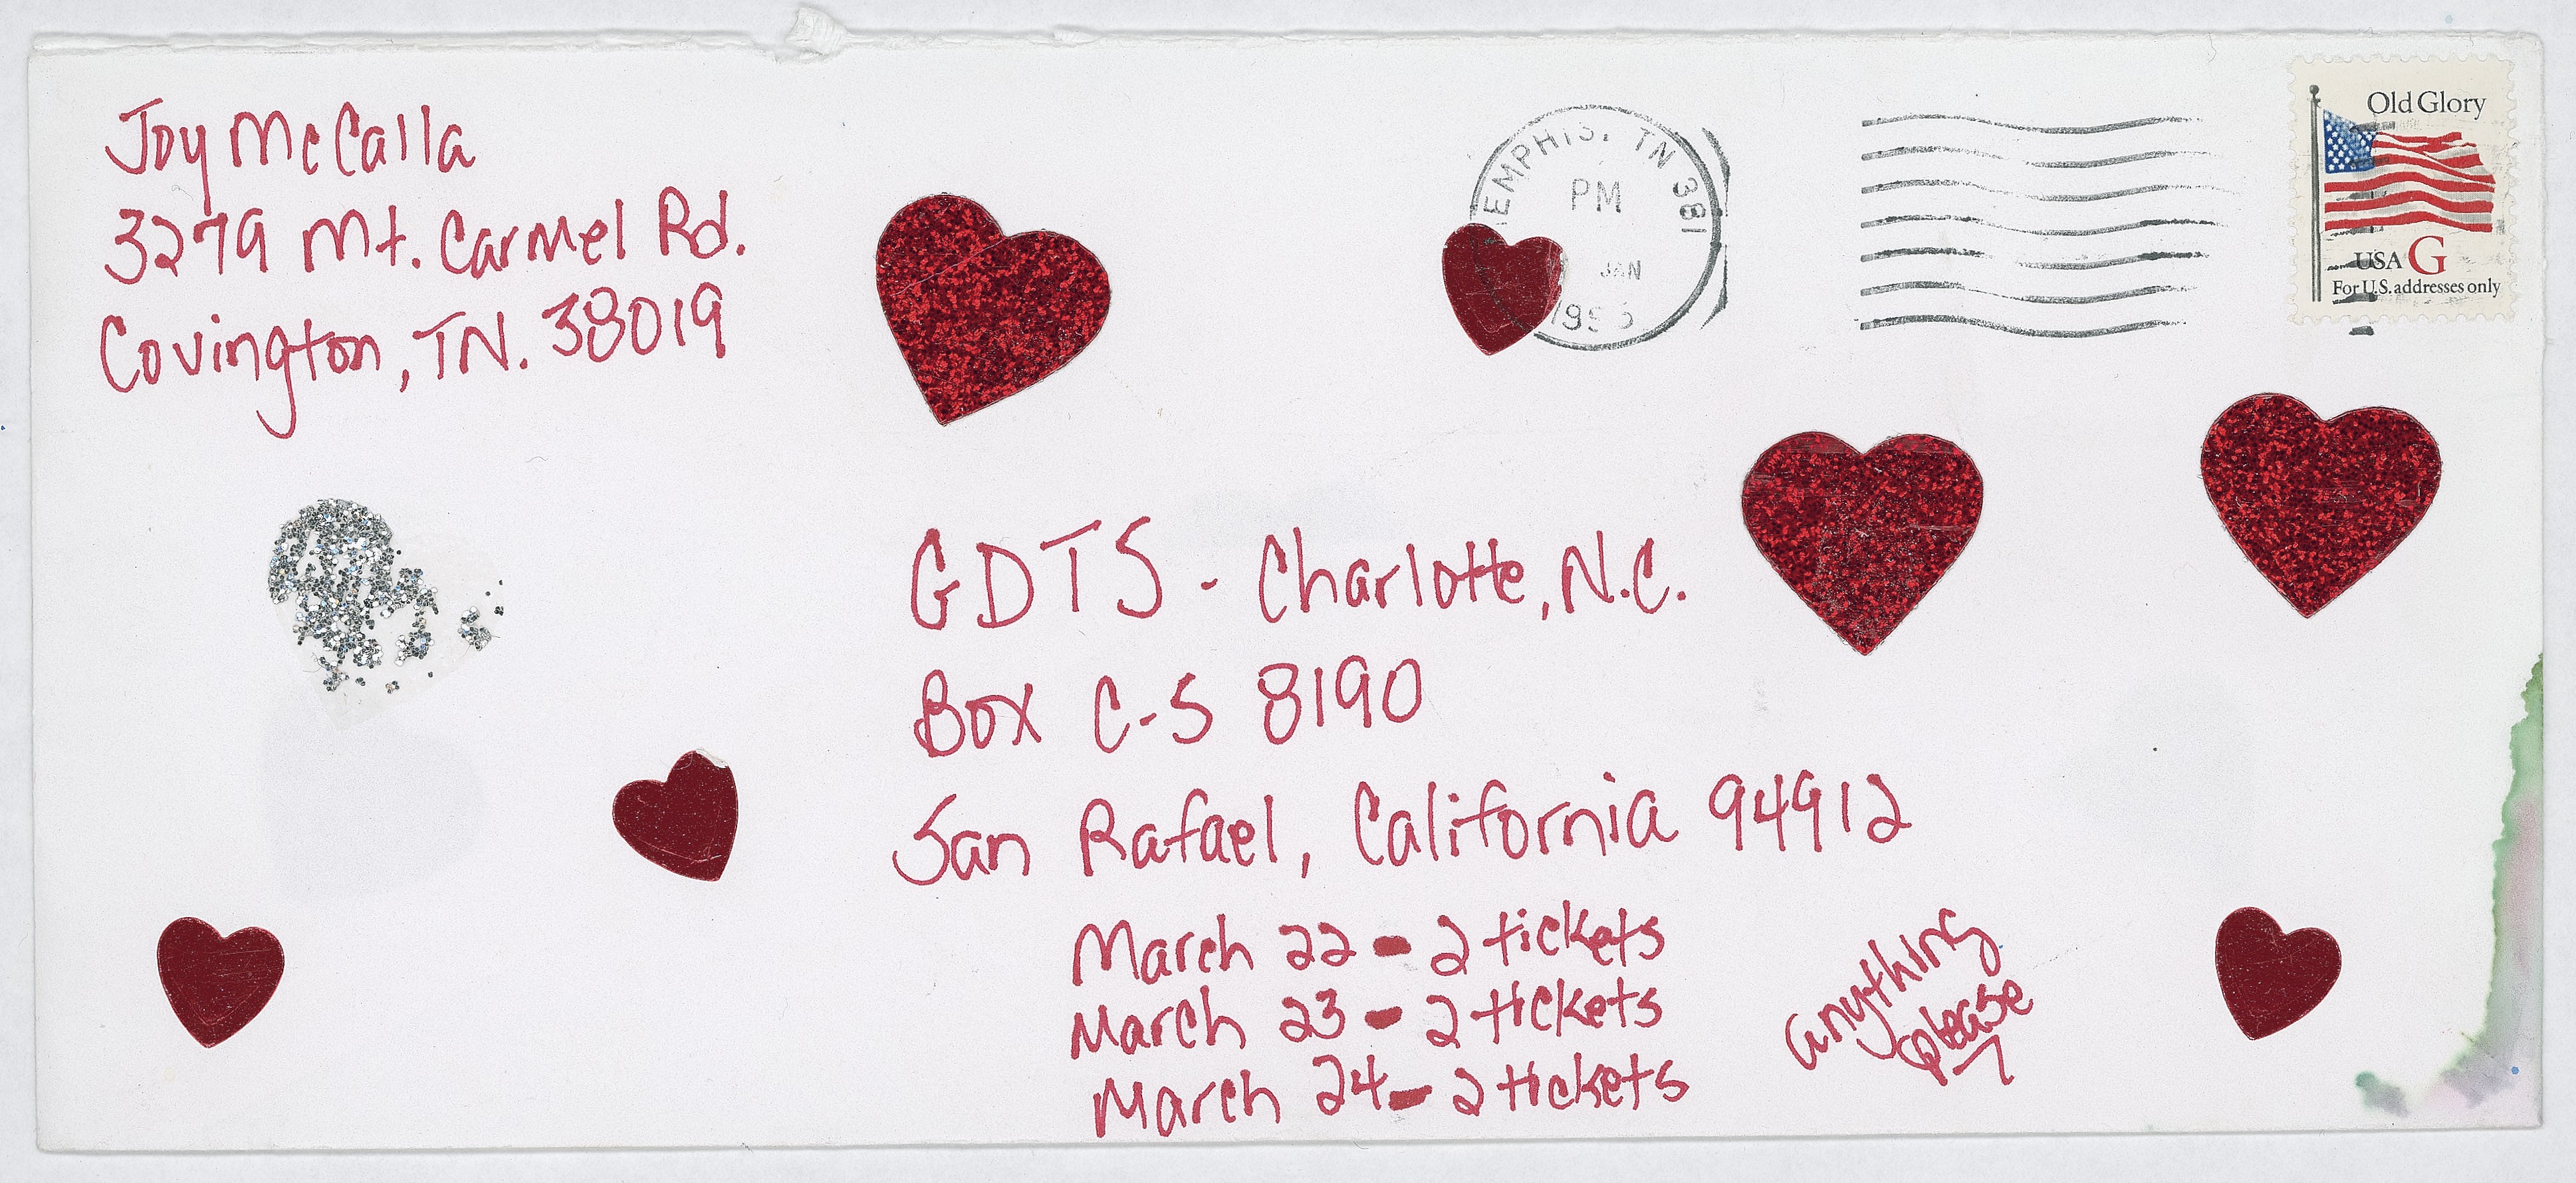 Joy McCalla
3279 Mt. Carmel Rd.
Covington, TN. 38019
EMPHIS. TN 381
PM
JAN
Old Glory
USA G
For U.S. addresses only
GDTS - Charlotte, N.C.
Box C-S 8190
San Rafael, California 94912
March 22 - 2 tickets
March 23 - 2 tickets
March 24 - 2 tickets
anything
please